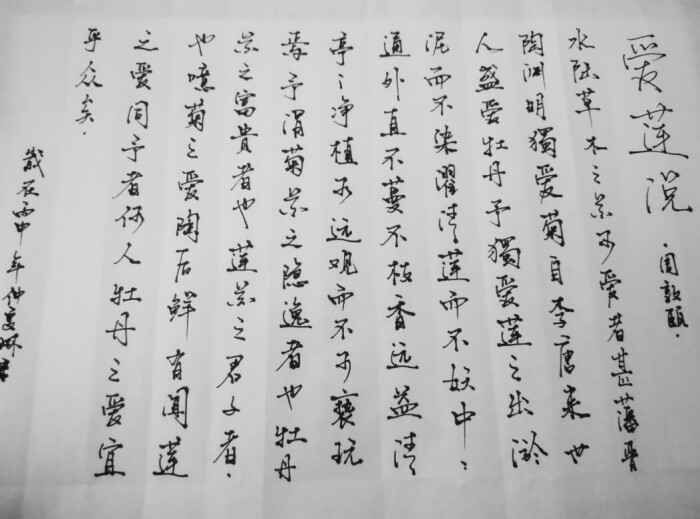 爱莲说 周敦颐.
水陆草木之花可爱者甚蕃晋
陶渊明獨爱菊自李唐来世
人盛爱牡丹予獨爱莲之出淤
泥而不染濯清莲而不妖中:
通外直不蔓不枝香远益清
亭:净植可远观而不可亵玩
焉予谓菊花之隐逸者也牡丹
花之富貴者也莲花之君子者、
也噫菊之爱陶后鲜有闻莲
之爱同予者何人牡丹之爱宜
乎众矣.
歲在丙申年仲夏琳書